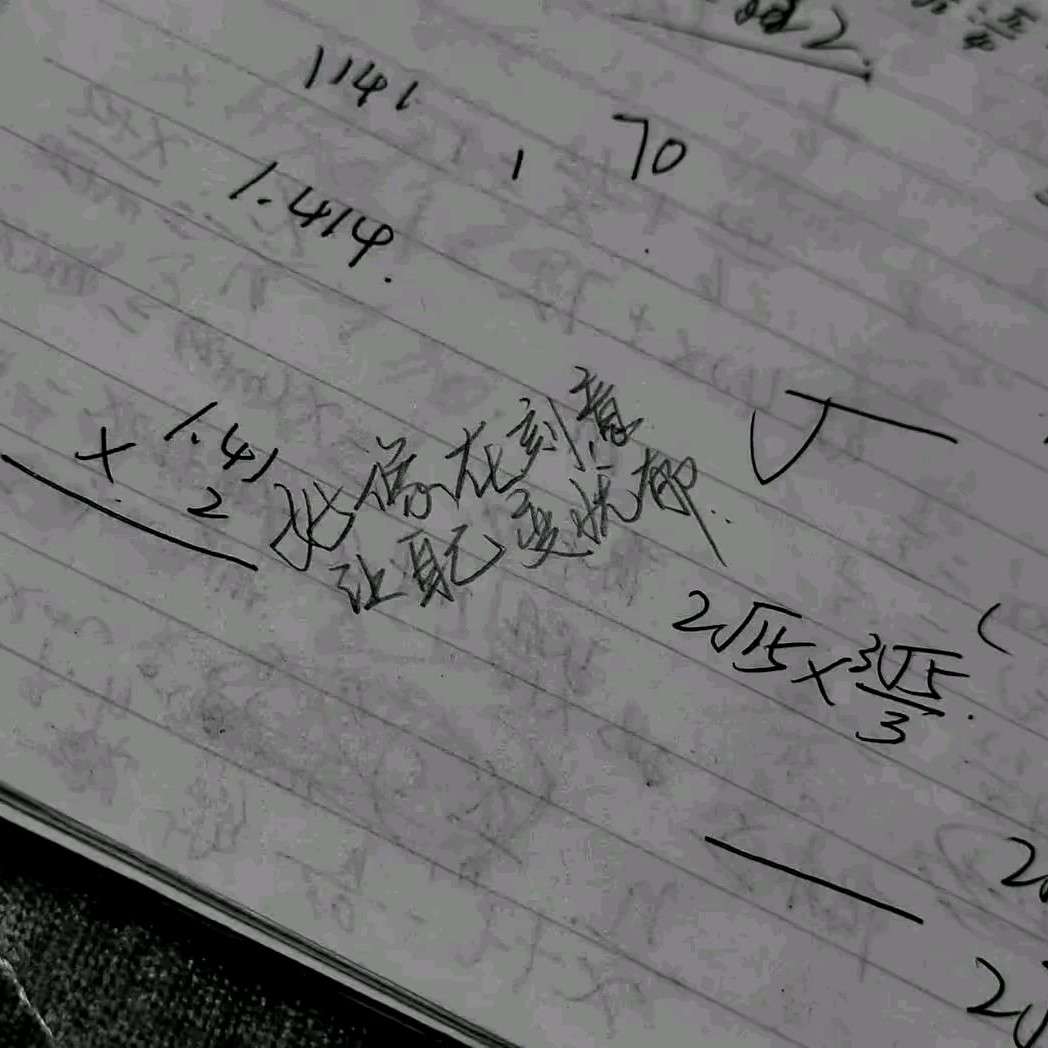 2
1141
1 70
1.414.
1.41
× 2
我像在刻意
让自己变忧郁..
√
2√15×3√5/3.